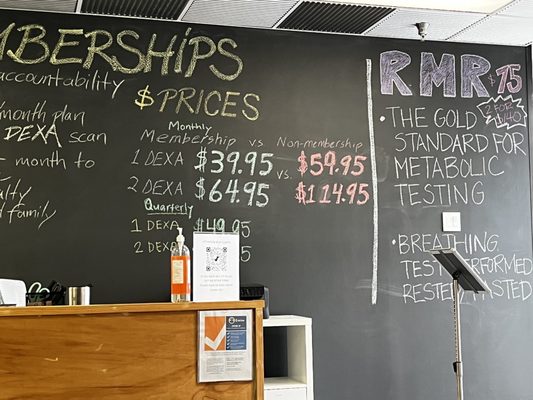 MBERSHIPS
accountability
/month plan
DEXA scan
- month to
family
$ PRICES
Monthly
Membership vs Non-membership
1 DEXA $39.95 vs. $59.95
2 DEXA $64.95 $114.95
Quarterly
1 DEXA $49.95
2 DEXA
RMR $75
2 FOR $140
• THE GOLD
STANDARD FOR
METABOLIC
TESTING
• BREATHING
TEST PERFORMED
RESTED FASTED